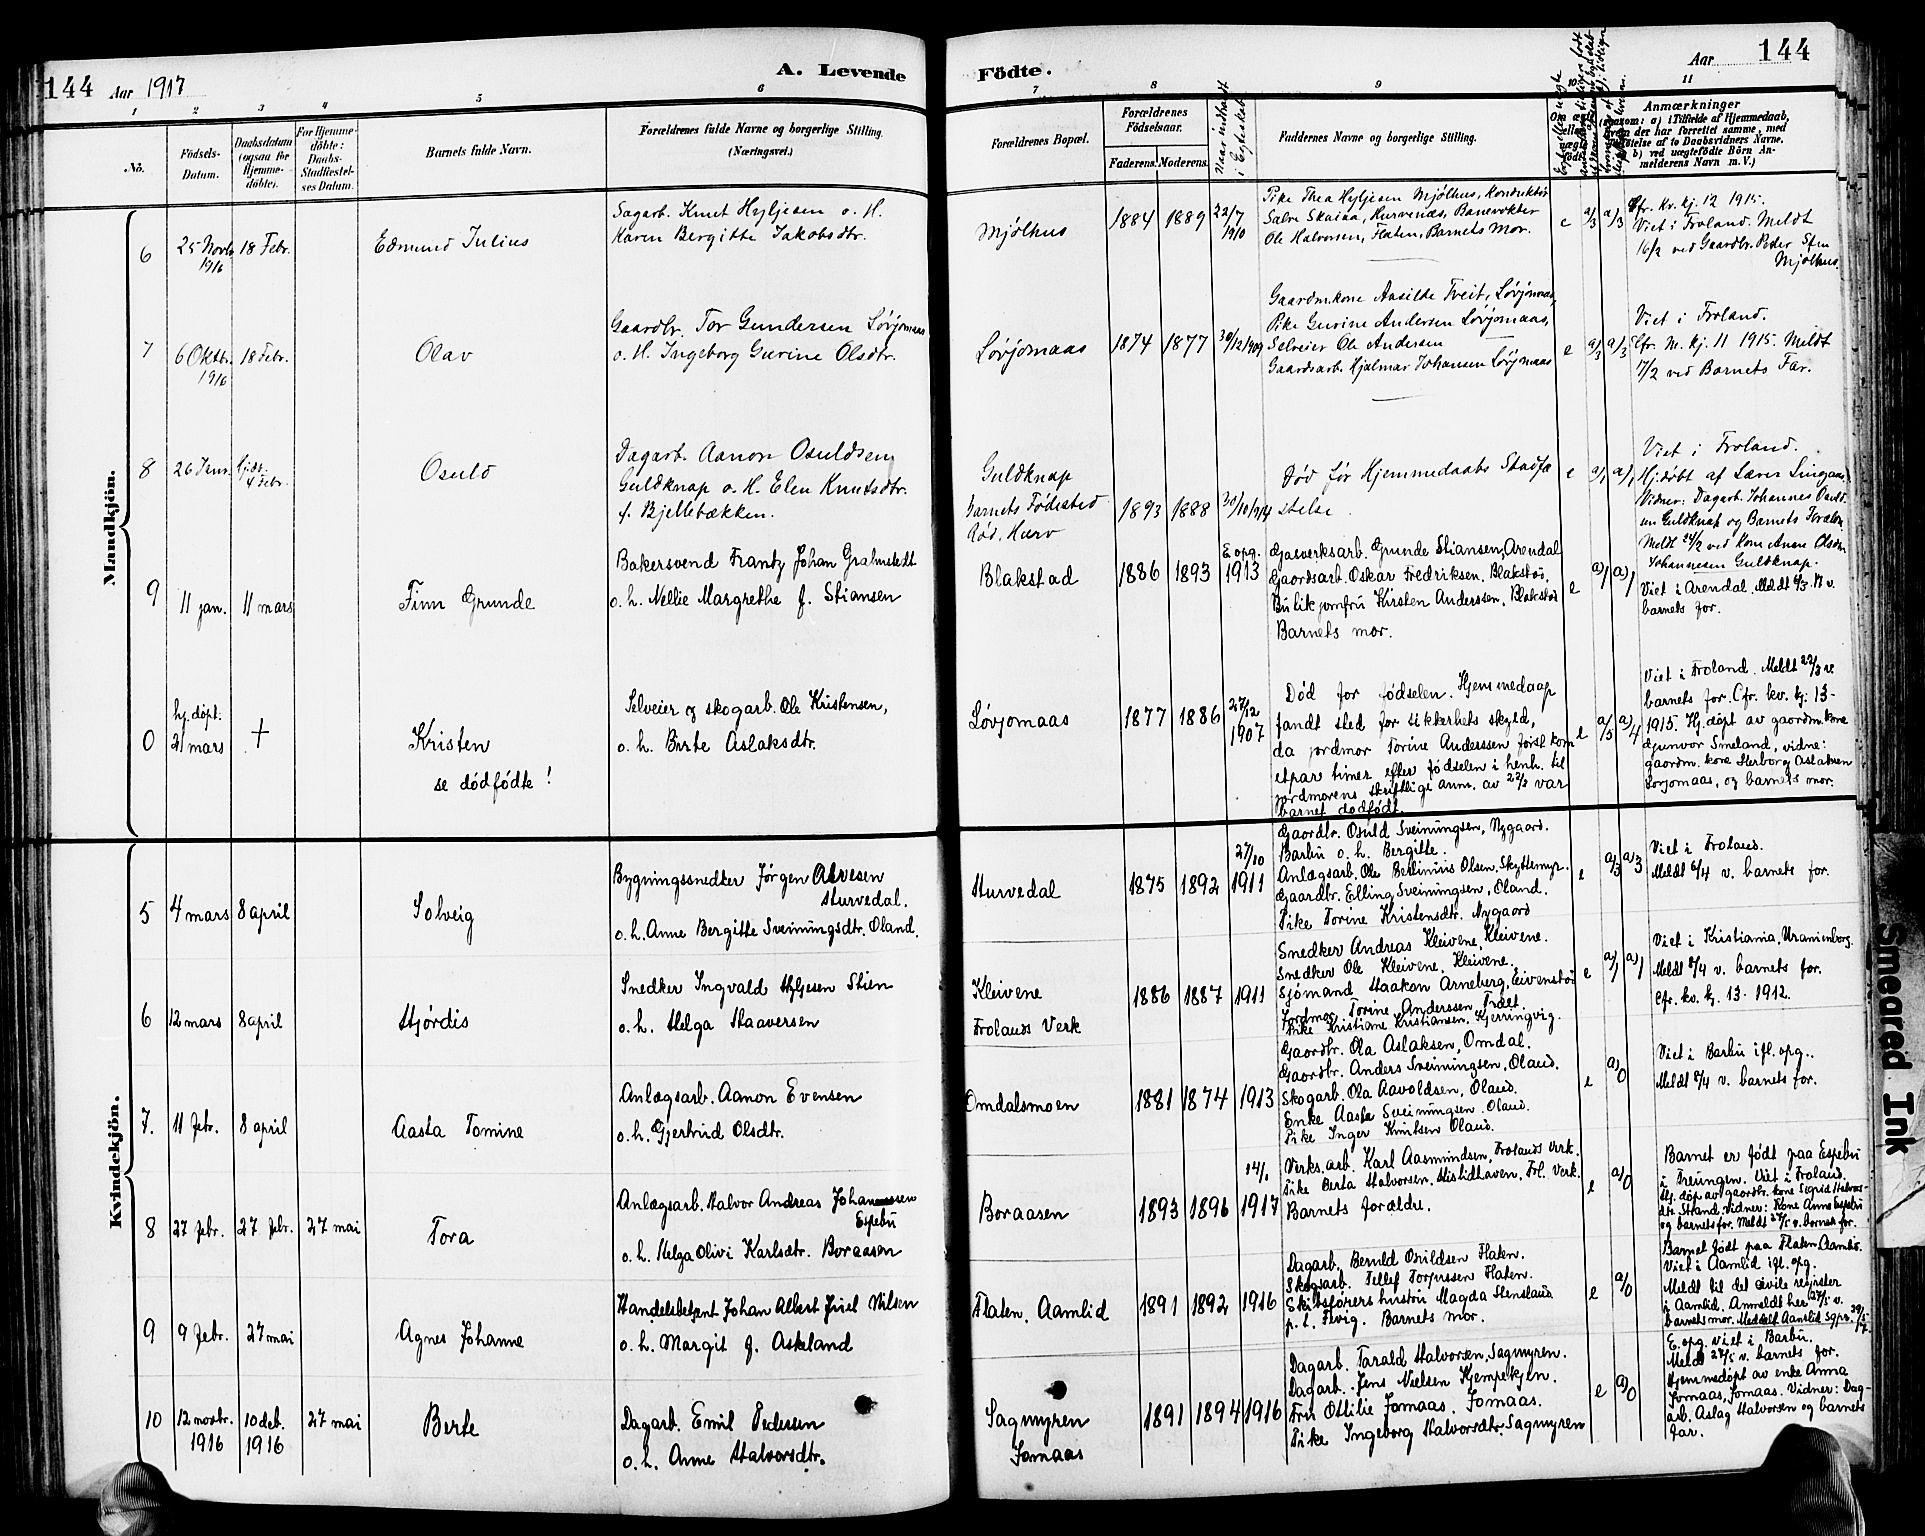 144 Aar 1917
A. Levende
Födte.
Aar 144
1 2 3 4 5 6 7 8 9 10 11
No.
Födsels-
Datum.
Daabsdatum
(ogsaa for
Hjemme-
döbte).
For Hjemme-
döbte:
Daabs-
Stadfæstel-
ses Datum.
Barnets fulde Navn.
Forældrenes fulde Navne og borgerlige Stilling.
(Næringsvei.)
Forældrenes Bopæl.
Forældrenes
Födselsaar.
Faderens. Moderens.
Naar indtraadt
i Egteskab
Faddernes Navne og borgerlige Stilling.
Anmærkninger
(saasom: a) i Tilfælde af Hjemmedaab,
hvem der har forrettet samme, med
b) ved uægtefödte Börn An-
melderens Navn m. V.)
Mandkjön.
6
25 Novbr
1916
18 Febr.
Edmund Julius
Sagarb. Knut Hyljesen o. H.
Karen Bergitte Jakobsdtr.
Mjølhus
1884 1889
22/7
1910
Pike Thea Hyljesen Mjølhus, Konduktør
Salve Skaiaa, Hurvenæs, Banevokter
Ole Halvorsen, Flaten, Barnets Mor.
e a/3 a/3
Cfr. Kv. kj. 12 1915.
Viet i Froland. Meldt
16/2 ved Gaardbr. Peder Sfen
Mjølhus.
7
6 Oktbr.
1916
18 Febr.
Olav
Gaardbr. Tor Gundersen Løvjomaas
o. H. Ingeborg Gurine Olsdtr.
Løvjomaas
1874 1877 30/12 1909
Gaardmkone Aasilde Tveit, Løvjomaas,
Pike Gurine Andersen Løvjomaas,
Selveier Ole Andersen
Gaardsarb. Hjalmar Johansen Løvjomaas
e a/3 a/3
Viet i Froland.
Cfr. M. kj. 11 1915. Meldt
17/2 ved Barnets Far.
8
26 Jan.
4 Febr.
Osuld
Dagarb. Aanon Osuldsen
Guldknap o. H. Elen Knutsdtr.
f. Bjellebækken.
Guldknap
Barnets Fødested
Rød, Hurv
1893 1888 30/10 1914
Død før Hjemmedaabs Stadfæ
stelse.
e a/1 a/1
Viet i Froland.
Hj.døbt af Lærer
Vidner: Dagarb. Johannes Osuld-
sen Guldknap og Barnets Foræln.
Meldt 24/2 ved Kone Anne Olsdtr
Johannesen Guldknap.
9
11 jan.
11 mars
Finn Grunde
Bakersvend Frantz Johan Gralmstedt
o. h. Nellie Margrethe f. Stiansen
Blakstad
1886 1893
E opg.
1913
Gasverksarb. Grunde Stiansen, Arendal
Gaardsarb. Oskar Fredriksen, Blakstad,
Butikjomfru Kirsten Anderssen, Blakstad
Barnets mor.
e a/1 a/1
Viet i Arendal. Meldt v.
barnets far.
0
hj. døpt.
21 mars
+
Kristen
se dødfødte!
Selveier og skogarb. Ole Kristensen,
o. h. Birte Aslaksdtr.
Løvjomaas
1877 1886
27/12
1907
Død før fødselen. Hjemmedaap
fandt sted for sikkerhets skyld,
da jordmor Torine Anderssen først kom
etpar timer efter fødselen i henh. til
jordmorens skriftlige anm. av 22/3 var
barnet dødfødt.
e a/5 a/4
Viet i Froland. Meldt 22/3 v.
barnets far. Cfr. kv. kj. 13-
1915. Hj. døpt av gaardm.kone
Gunvor Smeland, vidne:
gaardm. kone Herborg Aslaksen
Løvjomaas, og barnets mor.
Kvindekjön.
5
4 mars
8 april
Solveig
Bygningssnedker Jørgen Alvesen
Hurvedal.
o. h. Anne Bergitte Sveinungsdtr. Øland.
Hurvedal
1875 1892
27/10
1911
Gaardbr. Osuld Sveinungsen, Nygaard.
Barbu o. h. Bergitte.
Anlægsarb. Ole Bertinius Olsen, Skyttemyr.
Gaardbr. Elling Sveinungsen, Øland.
Pike Torine Kristensdtr. Nygaard
e a/3 a/3
Viet i Froland.
Meldt 6/4 v. barnets far.
6
12 mars
8 april
Hjørdis
Snedker Ingvald Hyljesen Stien
o. h. Helga Haaversen
Kleivene
Frolands Verk
1886 1887 1911
Snedker Andreas Kleivene, Kleivene.
Snedker Ole Kleivene, Kleivene.
Sjømand Haakon Arneberg, Eivenstød
Jordmor Torine Anderssen, Træet.
Pike Kristiane Kristiansen, Hjerringvig.
e a/1 a/1
Viet i Kristiania, Uranienborg.
Meldt 8/4 v. barnets far.
Cfr. kv. kj. 13-1912.
7.
11 febr.
8 april
Aasta Tomine
Anlægsarb. Aanon Evensen
o. h. Gjertrud Olsdtr.
Omdalsmoen
1881 1874 1913
Gaardbr. Ola Aslaksen, Omdal.
Gaardbr. Anders Sveinungsen, Øland.
Skogarb. Ola Aavoldsen, Øland.
Enke Aaste Sveinungsen, Øland.
Pike Inger Knutsen Øland.
e a/0
Viet i Barbu ifl. opg..
Meldt 8/4 v. barnets far.
8
27 febr.
27 febr.
27 mai
Tora
Anlægsarb. Halvor Andreas Johannessen
Espebu
o. h. Helga Olivi Karlsdtr. Boraasen
Boraasen
1893 1896
14/1
1917
Verks.arb. Karl Aasmundsen, Frolands Verk.
Pike Berta Halvorsen, Mistidhaven, Frl. Verk.
Barnets forældre.
e a/0
Barnet er født paa Espebu
i Treungen. Viet i Froland.
Hj. døp av gaardbr. kone Sigrid Halvors-
dtr. Strand. Vidner: Kone Anne Espebu
og barnets far. Meldt 27/5 v. barnets far.
9
9 febr.
27 mai
Agnes Johanne
Handelsbetjent Johan Albert Juel Nilsen
o. h. Margit f. Askeland
Flaten, Aamlid
1891 1892 1916
Dagarb. Bernuld Osuldsen Flaten.
Skogsarb. Tellef Torjussen Flaten.
Skibsførers hustru Magda Stensland
p. t. Flvig. Barnets mor.
e a/0
Barnet født paa Flaten, Aamlid.
Viet i Aamlid ifl. opg.
Meldt til det civile register
i Aamlid. Anmeldt her 27/5 v.
barnets mor. Meddelt Aamlid sgpr. 29/5-17.
10
12 novbr.
1916
10 deb.
1916
27 mai
Berte
Dagarb. Emil Pedersen
o. h. Anne Halvorsdtr.
Sagmyren
Jomaas
1891 1894 1916
Dagarb. Tarald Halvorsen, Sagmyren.
Dagarb. Jens Nielsen Kjempekjen.
Fru Ottilie Jomaas, Jomaas.
Pike Ingeborg Halvorsdtr. Sagmyren
e a/0
E. opg. viet i Barbu.
Meldt 27/5 v. barnets far.
Hjemmedøpt av enke Anna
Jomaas, Jomaas. Vidner: Dag-
arb. Aslag Halvorsen og barnets
far.
Smeared Ink